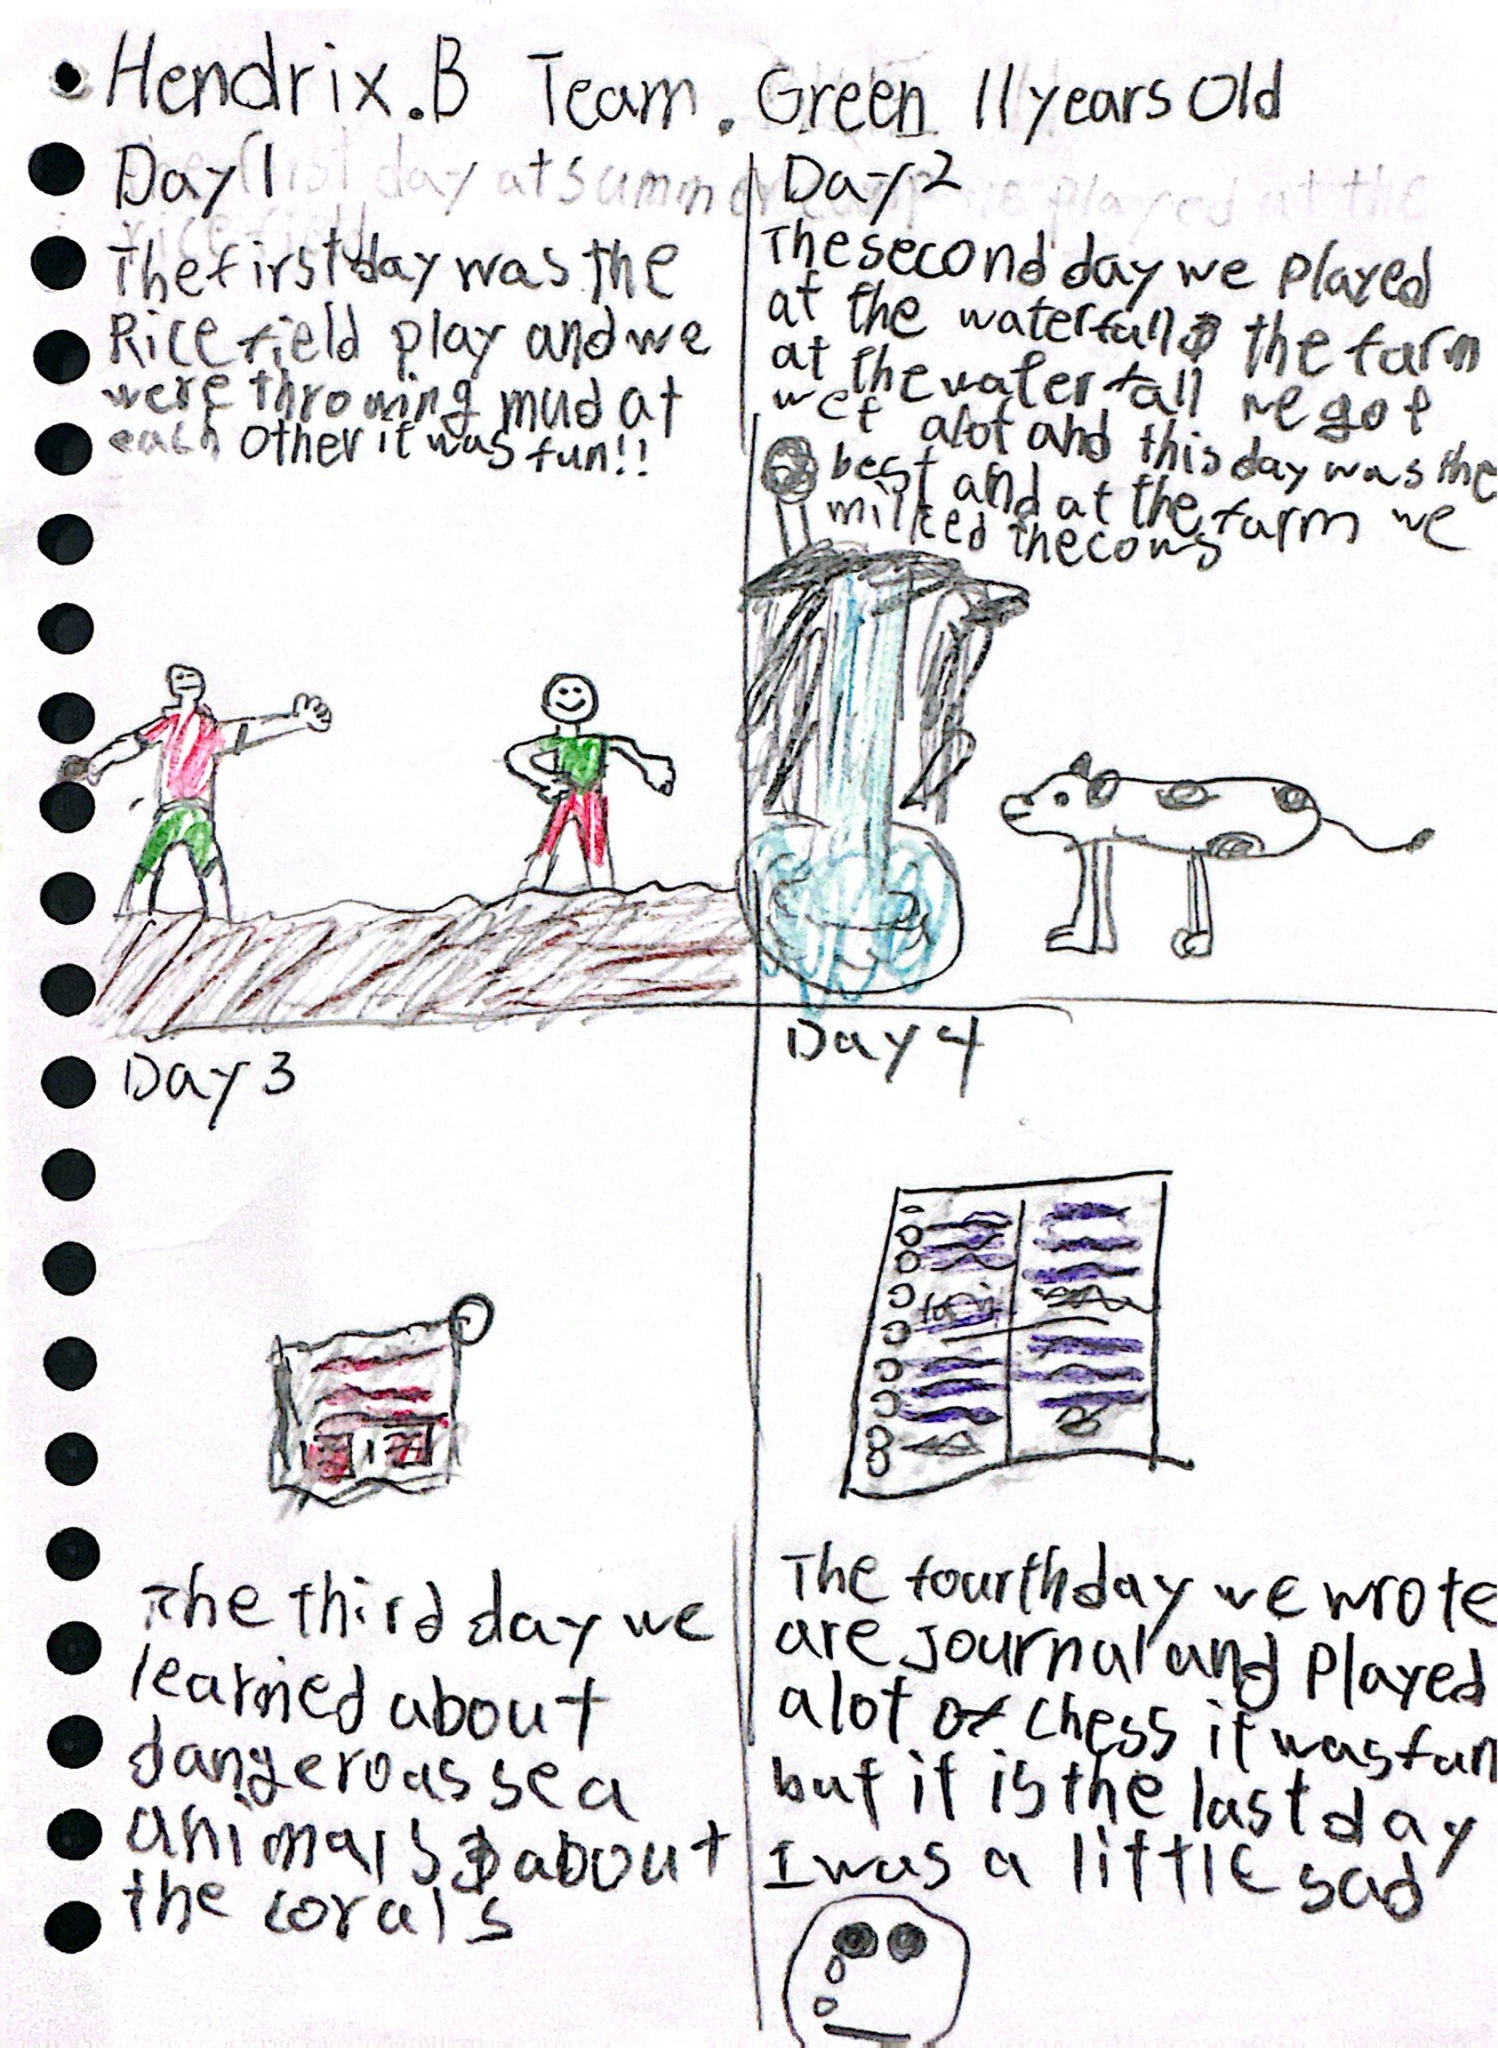 Hendrix.B Team. Green 11 years Old
Day 1
The first day was the
Rice field play and we
were throwing mud at
each other it was fun!!
Day 2
The second day we played
at the waterfall & the farm
at the waterfall we got
wet alot and this day was the
best and at the farm we
milked the cows
Day 3
The third day we
learned about
dangeroas sea
animals & about
the corals
Day 4
The fourth day we wrote
are journal and played
alot of chess it was fun
but it is the last day
I was a little sad